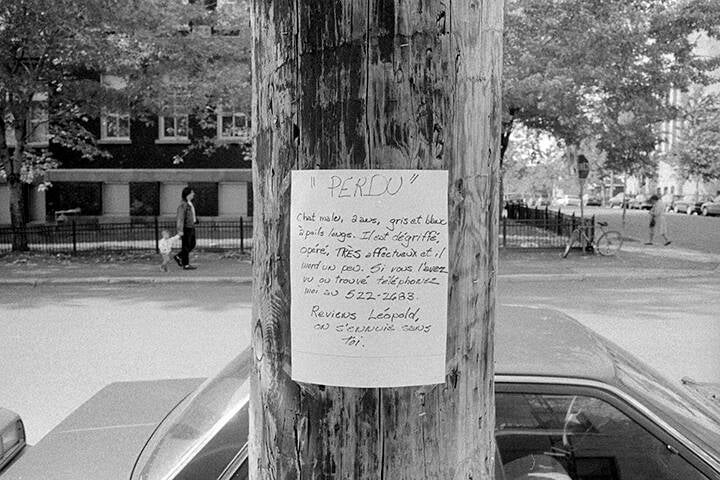 " PERDU "
Chat male, 2 ans, gris et blanc
à poils longs. Il est dégriffé,
opéré, TRÈS affectueux et il
mord un peu. Si vous l'avez
vu ou trouvé téléphonez
moi au 522-2683.
Reviens Léopold,
on s'ennuie sans
toi.